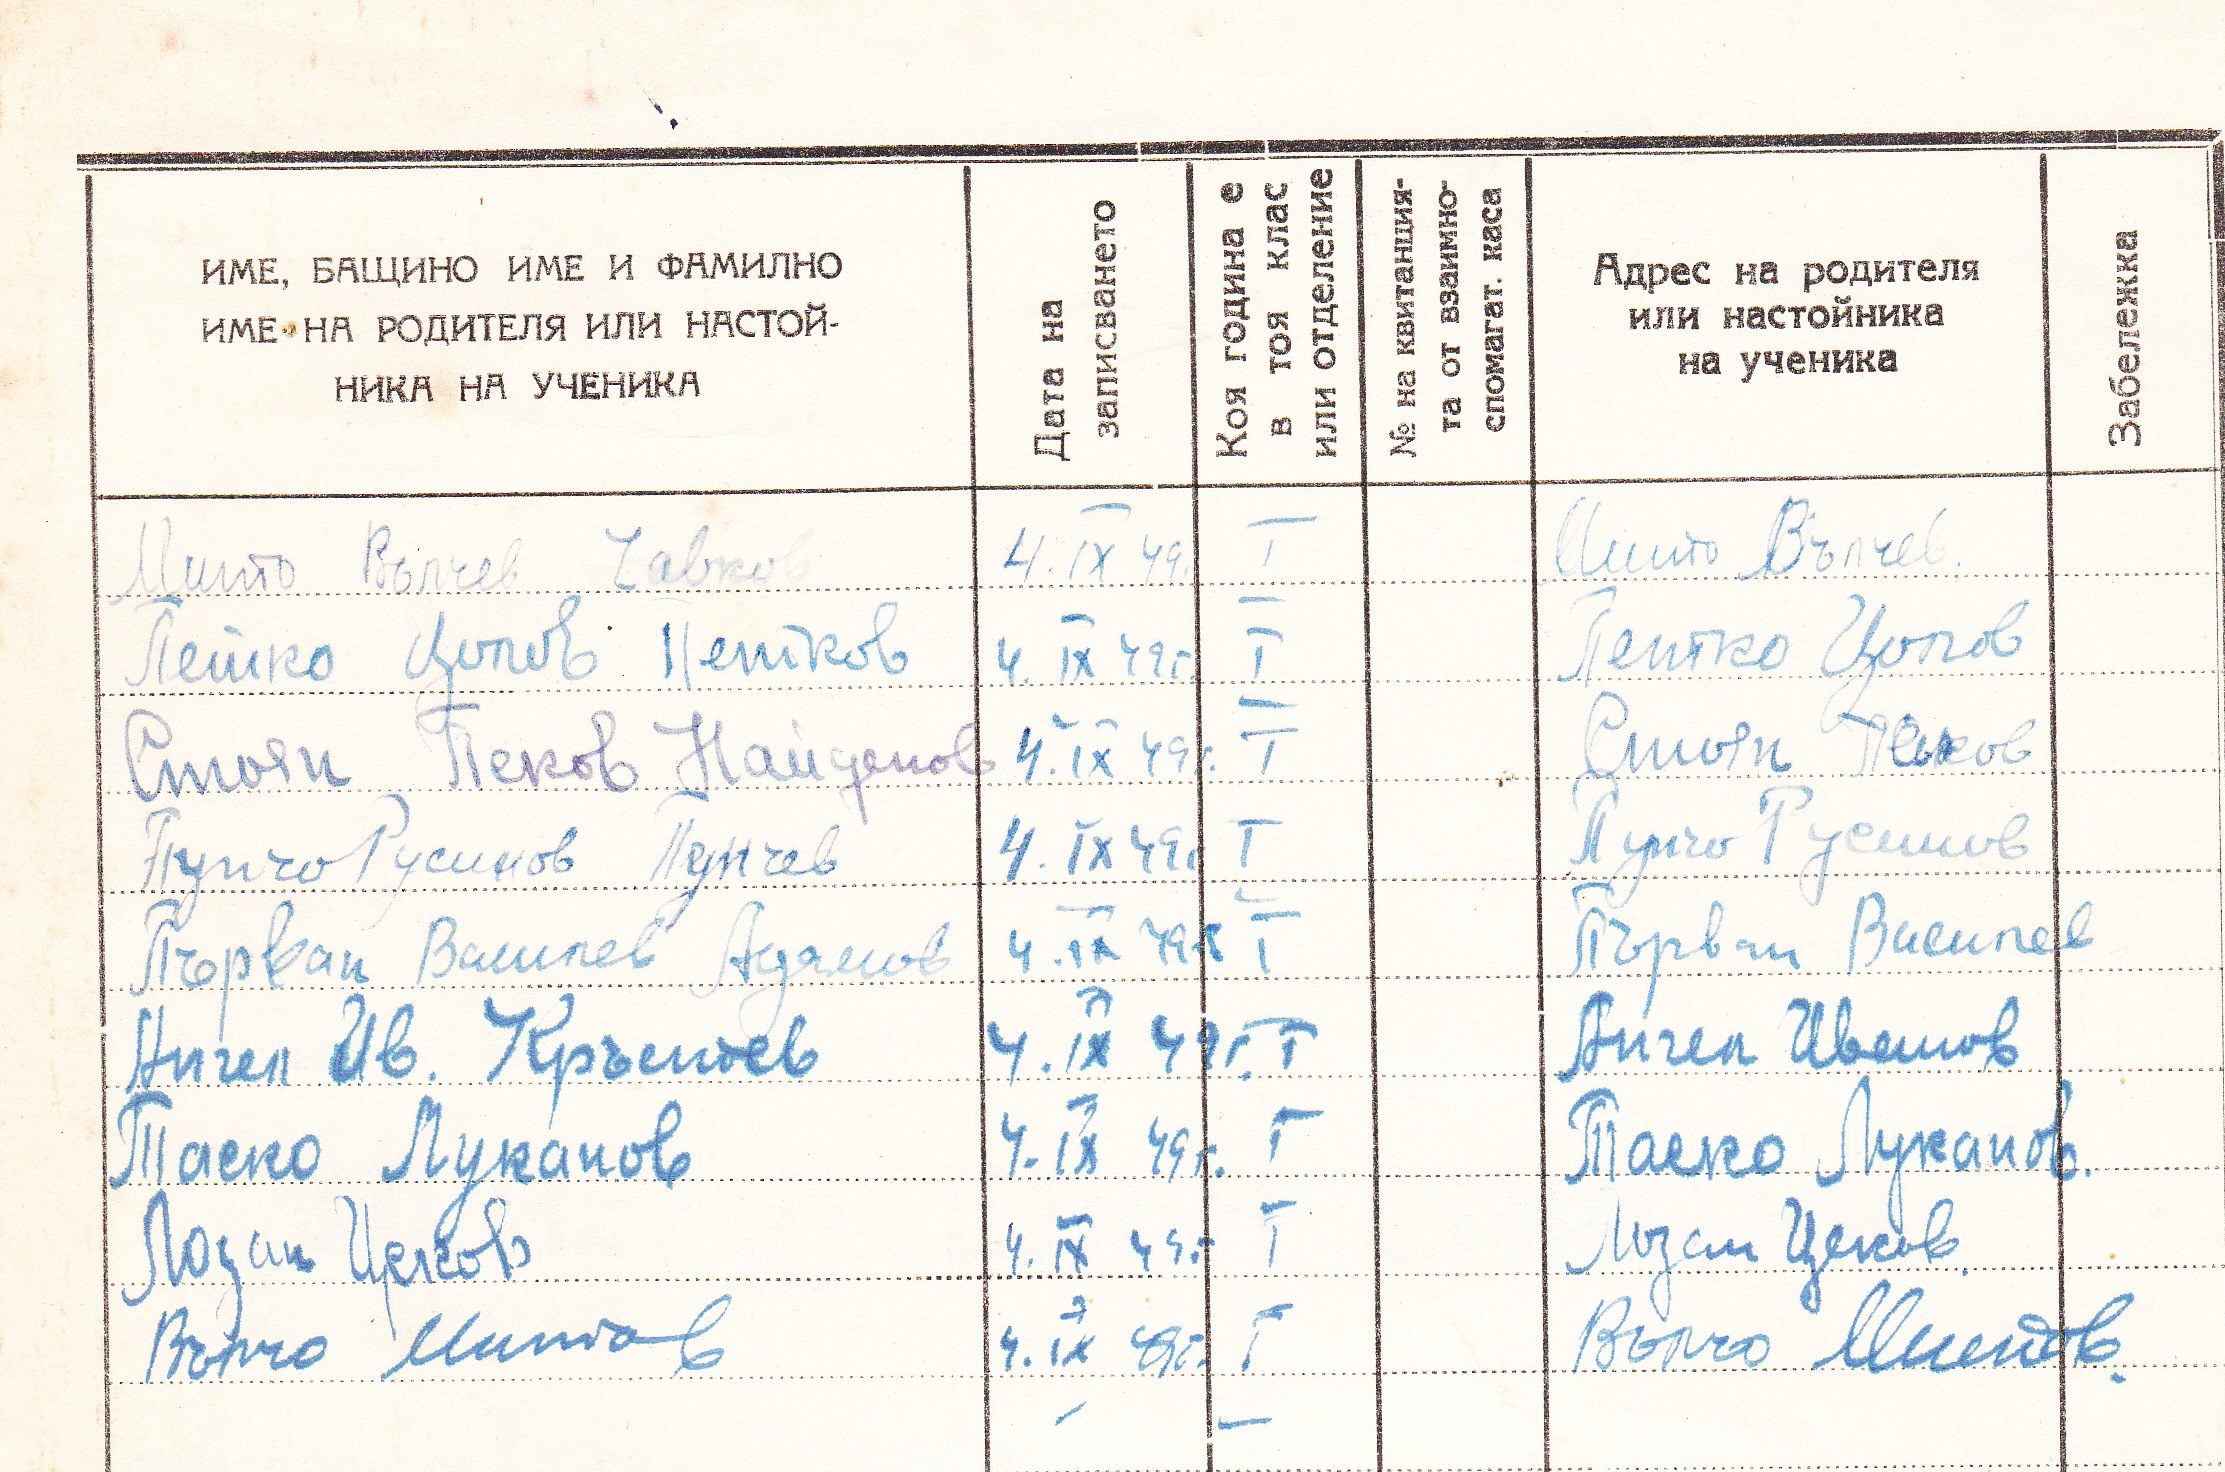 ИМЕ, БАЩИНО ИМЕ И ФАМИЛНО
ИМЕ НА РОДИТЕЛЯ ИЛИ НАСТОЙ-
НИКА НА УЧЕНИКА
Дата на
записването
Коя година е
в тоя клас
или отделение
№ на квитанция-
та от взаимно-
спомагат. каса
Адрес на родителя
или настойника
на ученика
Забележка
Минто Вълчев Чавков 4.IX 49 I Минто Вълчев.
Петко Цопов Петков 4.IX 49г. I Петко Цопов
Стоян Пеков Найденов 4.IX 49г. I Стоян Пеков
Пунчо Русинов Пунчев 4.IX 49г. I Пунчо Русинов
Първан Василев Адамов 4.IX 49г I Първан Василев
Ангел Ив. Кръстев 4.IX 49г. I Ангел Иванов
Таско Луканов 4.IX 49г. I Таско Луканов.
Лозан Цеков 4.IX 49г I Лозан Цеков.
Вълчо Минтов 4.IX 49г. I Вълчо Минтов.